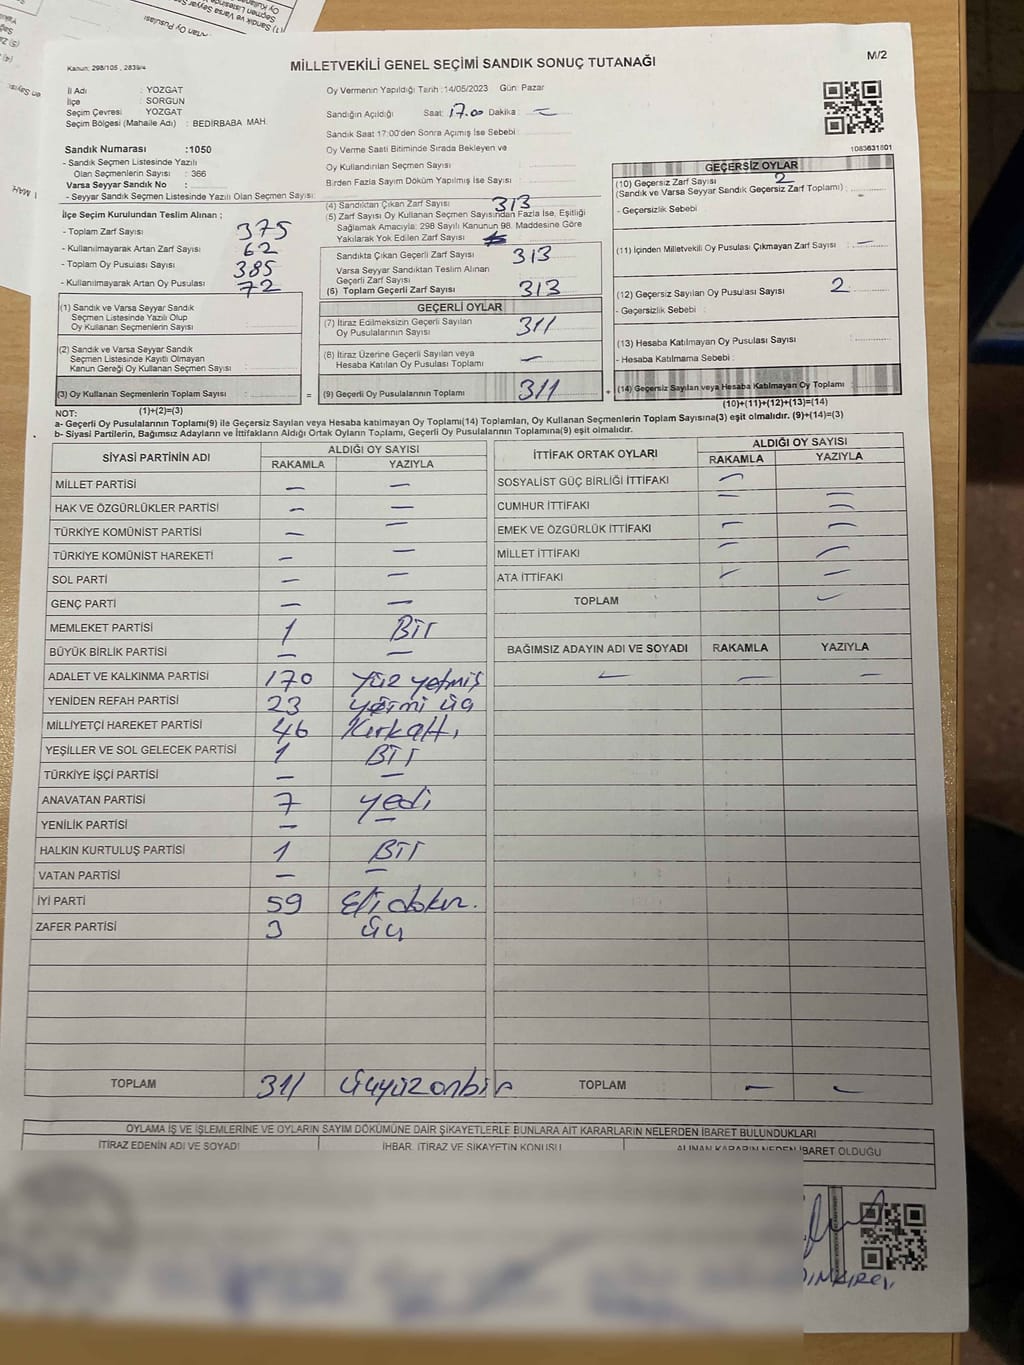 Kanun: 298/105 , 2839/4
MİLLETVEKİLİ GENEL SEÇİMİ SANDIK SONUÇ TUTANAĞI
M/2
İl Adı : YOZGAT
İlçe : SORGUN
Seçim Çevresi : YOZGAT
Seçim Bölgesi (Mahalle Adı) : BEDİRBABA MAH.
Oy Vermenin Yapıldığı Tarih :14/05/2023 Gün: Pazar
Sandığın Açıldığı Saat: 17.00 Dakika : —
Sandık Saat 17:00'den Sonra Açımış İse Sebebi :
Oy Verme Saati Bitiminde Sırada Bekleyen ve
Oy Kullandırılan Seçmen Sayısı
Birden Fazla Sayım Döküm Yapılmış İse Sayısı :
1083631801
Sandık Numarası :1050
- Sandık Seçmen Listesinde Yazılı
Olan Seçmenlerin Sayısı : 366
Varsa Seyyar Sandık No :
- Seyyar Sandık Seçmen Listesinde Yazılı Olan Seçmen Sayısı:
İlçe Seçim Kurulundan Teslim Alınan ;
- Toplam Zarf Sayısı 375
- Kullanılmayarak Artan Zarf Sayısı 62
- Toplam Oy Pusulası Sayısı 385
- Kullanılmayarak Artan Oy Pusulası 72
(1) Sandık ve Varsa Seyyar Sandık
Seçmen Listesinde Yazılı Olup
Oy Kullanan Seçmenlerin Sayısı
(2) Sandık ve Varsa Seyyar Sandık
Seçmen Listesinde Kayıtlı Olmayan
Kanun Gereği Oy Kullanan Seçmen Sayısı :
(3) Oy Kullanan Seçmenlerin Toplam Sayısı :
(4) Sandıktan Çıkan Zarf Sayısı 313
(5) Zarf Sayısı Oy Kullanan Seçmen Sayısından Fazla İse, Eşitliği
Sağlamak Amacıyla; 298 Sayılı Kanunun 98. Maddesine Göre
Yakılarak Yok Edilen Zarf Sayısı :
Sandıkta Çıkan Geçerli Zarf Sayısı 313
Varsa Seyyar Sandıktan Teslim Alınan
Geçerli Zarf Sayısı
(6) Toplam Geçerli Zarf Sayısı 313
GEÇERLİ OYLAR
(7) İtiraz Edilmeksizin Geçerli Sayılan
Oy Pusulalarının Sayısı 311
(8) İtiraz Üzerine Geçerli Sayılan veya
Hesaba Katılan Oy Pusulası Toplamı —
= (9) Geçerli Oy Pusulalarının Toplamı 311 +
GEÇERSİZ OYLAR
(10) Geçersiz Zarf Sayısı 2
(Sandık ve Varsa Seyyar Sandık Geçersiz Zarf Toplamı) :
- Geçersizlik Sebebi :
(11) İçinden Milletvekili Oy Pusulası Çıkmayan Zarf Sayısı : —
(12) Geçersiz Sayılan Oy Pusulası Sayısı : 2
- Geçersizlik Sebebi :
(13) Hesaba Katılmayan Oy Pusulası Sayısı :
- Hesaba Katılmama Sebebi :
(14) Geçersiz Sayılan veya Hesaba Katılmayan Oy Toplamı :
(10)+(11)+(12)+(13)=(14)
NOT: (1)+(2)=(3)
a- Geçerli Oy Pusulalarının Toplamı(9) ile Geçersiz Sayılan veya Hesaba katılmayan Oy Toplamı(14) Toplamları, Oy Kullanan Seçmenlerin Toplam Sayısına(3) eşit olmalıdır. (9)+(14)=(3)
b- Siyasi Partilerin, Bağımsız Adayların ve İttifakların Aldığı Ortak Oyların Toplamı, Geçerli Oy Pusulalarının Toplamına(9) eşit olmalıdır.
SİYASİ PARTİNİN ADI ALDIĞI OY SAYISI
RAKAMLA YAZIYLA
MİLLET PARTİSİ — —
HAK VE ÖZGÜRLÜKLER PARTİSİ — —
TÜRKİYE KOMÜNİST PARTİSİ — —
TÜRKİYE KOMÜNİST HAREKETİ — —
SOL PARTİ — —
GENÇ PARTİ — —
MEMLEKET PARTİSİ 1 Bir
BÜYÜK BİRLİK PARTİSİ — —
ADALET VE KALKINMA PARTİSİ 170 Yüz yetmiş
YENİDEN REFAH PARTİSİ 23 yirmi üç
MİLLİYETÇİ HAREKET PARTİSİ 46 Kırkaltı
YEŞİLLER VE SOL GELECEK PARTİSİ 1 Bir
TÜRKİYE İŞÇİ PARTİSİ — —
ANAVATAN PARTİSİ 7 yedi
YENİLİK PARTİSİ — —
HALKIN KURTULUŞ PARTİSİ 1 Bir
VATAN PARTİSİ — —
İYİ PARTİ 59 Eli dokuz.
ZAFER PARTİSİ 3 üç
TOPLAM 311 üçyüz onbir
İTTİFAK ORTAK OYLARI ALDIĞI OY SAYISI
RAKAMLA YAZIYLA
SOSYALİST GÜÇ BİRLİĞİ İTTİFAKI —
CUMHUR İTTİFAKI — —
EMEK VE ÖZGÜRLÜK İTTİFAKI — —
MİLLET İTTİFAKI — —
ATA İTTİFAKI — —
TOPLAM —
BAĞIMSIZ ADAYIN ADI VE SOYADI RAKAMLA YAZIYLA
— — —
TOPLAM — —
OYLAMA İŞ VE İŞLEMLERİNE VE OYLARIN SAYIM DÖKÜMÜNE DAİR ŞİKAYETLERLE BUNLARA AİT KARARLARIN NELERDEN İBARET BULUNDUKLARI
İTİRAZ EDENİN ADI VE SOYADI İHBAR, İTİRAZ VE ŞİKAYETİN KONUSU ALINAN KARARIN NEDEN İBARET OLDUĞU